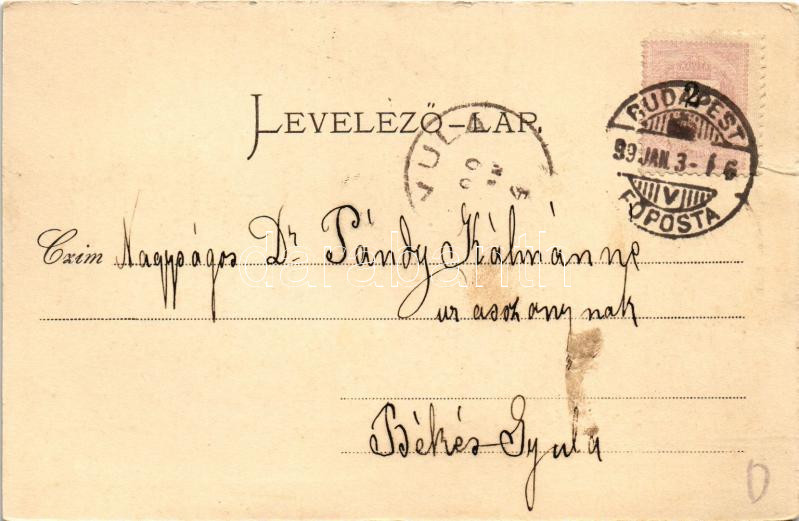 LEVELEZŐ-LAP.
2
BUDAPEST
99 JAN. 3 - 1 6
V
FŐPOSTA
Czim Nagyságos Dr. Pándy Kálmánné
urasszonynak
Békés-Gyula
D
darabanth